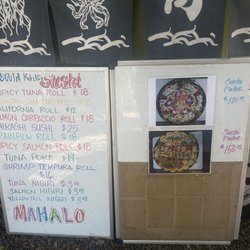 Sushi
SPICY TUNA ROLL $18
CALIFORNIA ROLL $12
SALMON CARPACCIO ROLL $18
CHIRASHI SUSHI $25
RAINBOW ROLL $18
SPICY SALMON ROLL $18
TUNA POKE $19
SHRIMP TEMPURA ROLL
$16
TUNA NIGIRI $3.00
SALMON NIGIRI $3.00
YELLOWTAIL NIGIRI $3.00
MAHALO
Sushi
Platter
Sushi
Platter